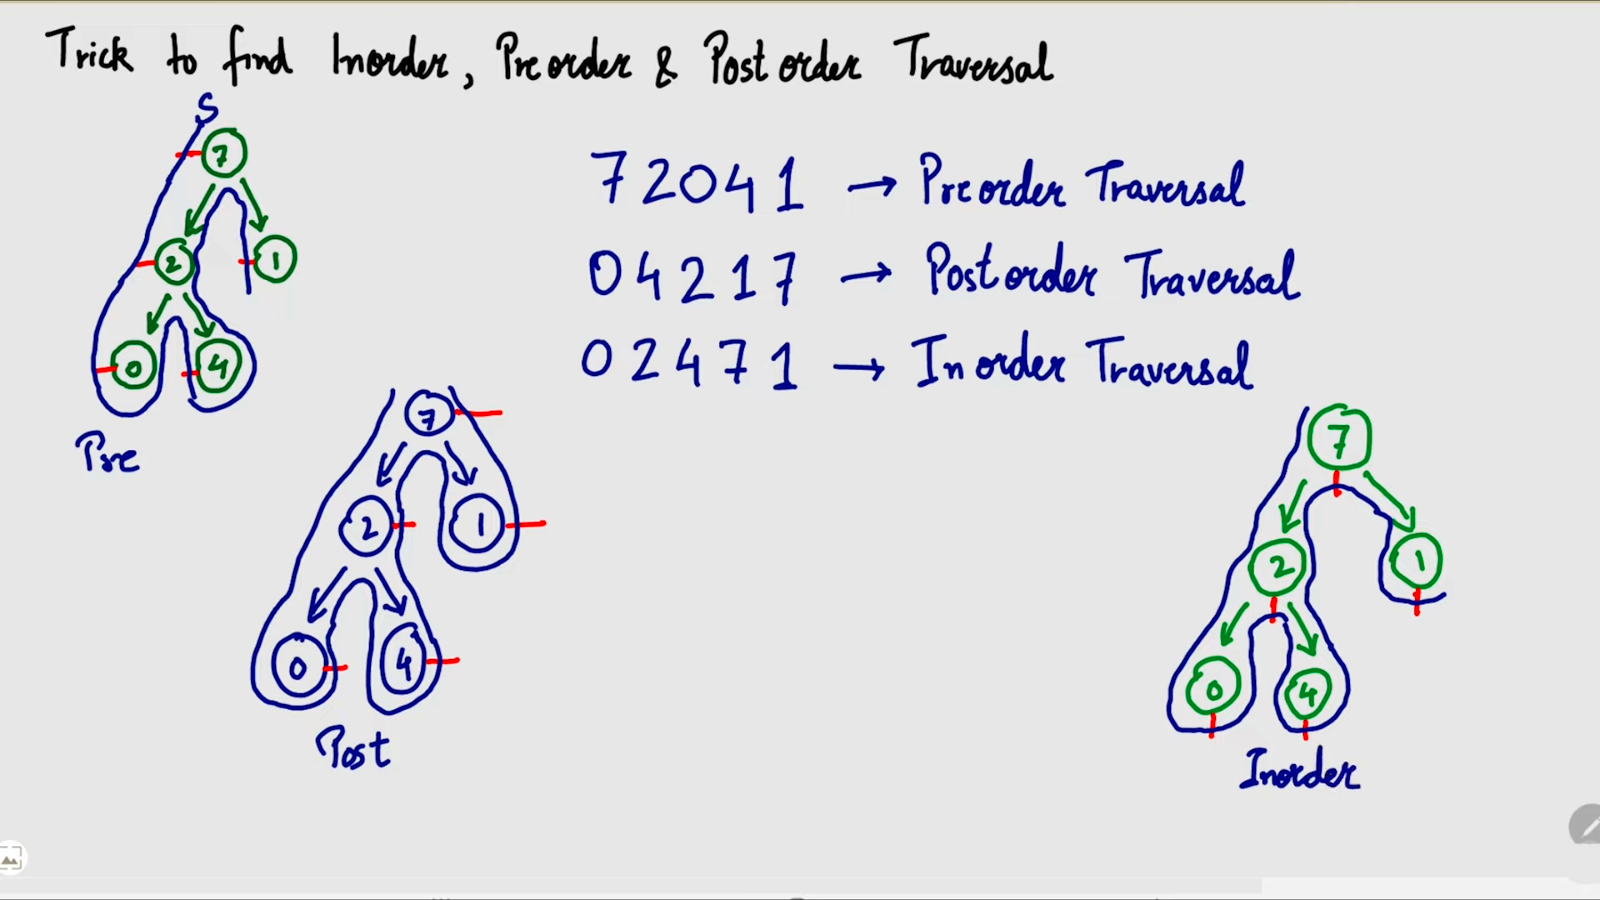 Trick to find Inorder, Preorder & Post order Traversal
S
7
2 1
0 4
Pre
7 2 0 4 1 → Preorder Traversal
0 4 2 1 7 → Postorder Traversal
0 2 4 7 1 → Inorder Traversal
7
2 1
0 4
Post
7
2 1
0 4
Inorder